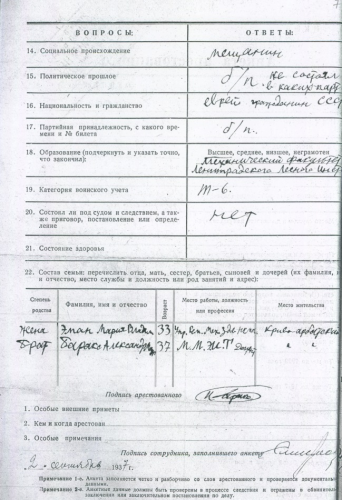 ВОПРОСЫ: ОТВЕТЫ:
14. Социальное происхождение мещанин
15. Политическое прошлое б/п. не состоял
в каких парт
16. Национальность и гражданство еврей гражданин СССР
17. Партийная принадлежность, с какого вре-
мени и № билета б/п.
18. Образование (подчеркнуть и указать точно,
что закончил): Высшее, среднее, низшее, неграмотен
Механический факультет
Ленинградского Лесного Инст
19. Категория воинского учета Т-6.
20. Состоял ли под судом и следствием, а так-
же приговор, постановление или опреде-
ление нет
21. Состояние здоровья
22. Состав семьи: перечислить отца, мать, сестер, братьев, сыновей и дочерей (их фамилия,
и отчество, место службы и должность или род занятий и адрес):
Степень
родства Фамилия, имя и отчество Возраст Место работы, должность
или профессия Место жительства
Жена Мария 33
Брат Александр 37
Подпись арестованного
1. Особые внешние приметы
2. Кем и когда арестован
3. Особые примечания
Подпись сотрудника, заполнившего анкету
2 сентября 1937 г.
Примечание 1-е. Анкета заполняется четко и разборчиво со слов арестованного и проверяется документаль-
ными данными.
Примечание 2-е. Анкетные данные должны быть проверены в процессе следствия и отражены в обвинительном
заключении или заключительном постановлении по делу.